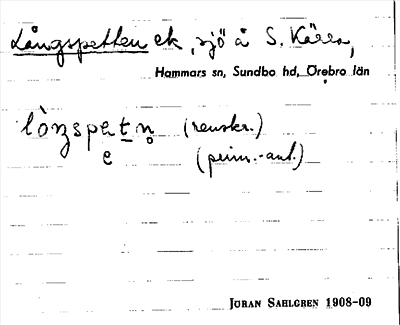 Långspetten ek, sjö å S. Kärra,
Hammars sn, Sundbo hd, Örebro län
lòŋspetn̥ (renskr.)
e (prim.-ant.)
JÖRAN SAHLGREN 1908-09